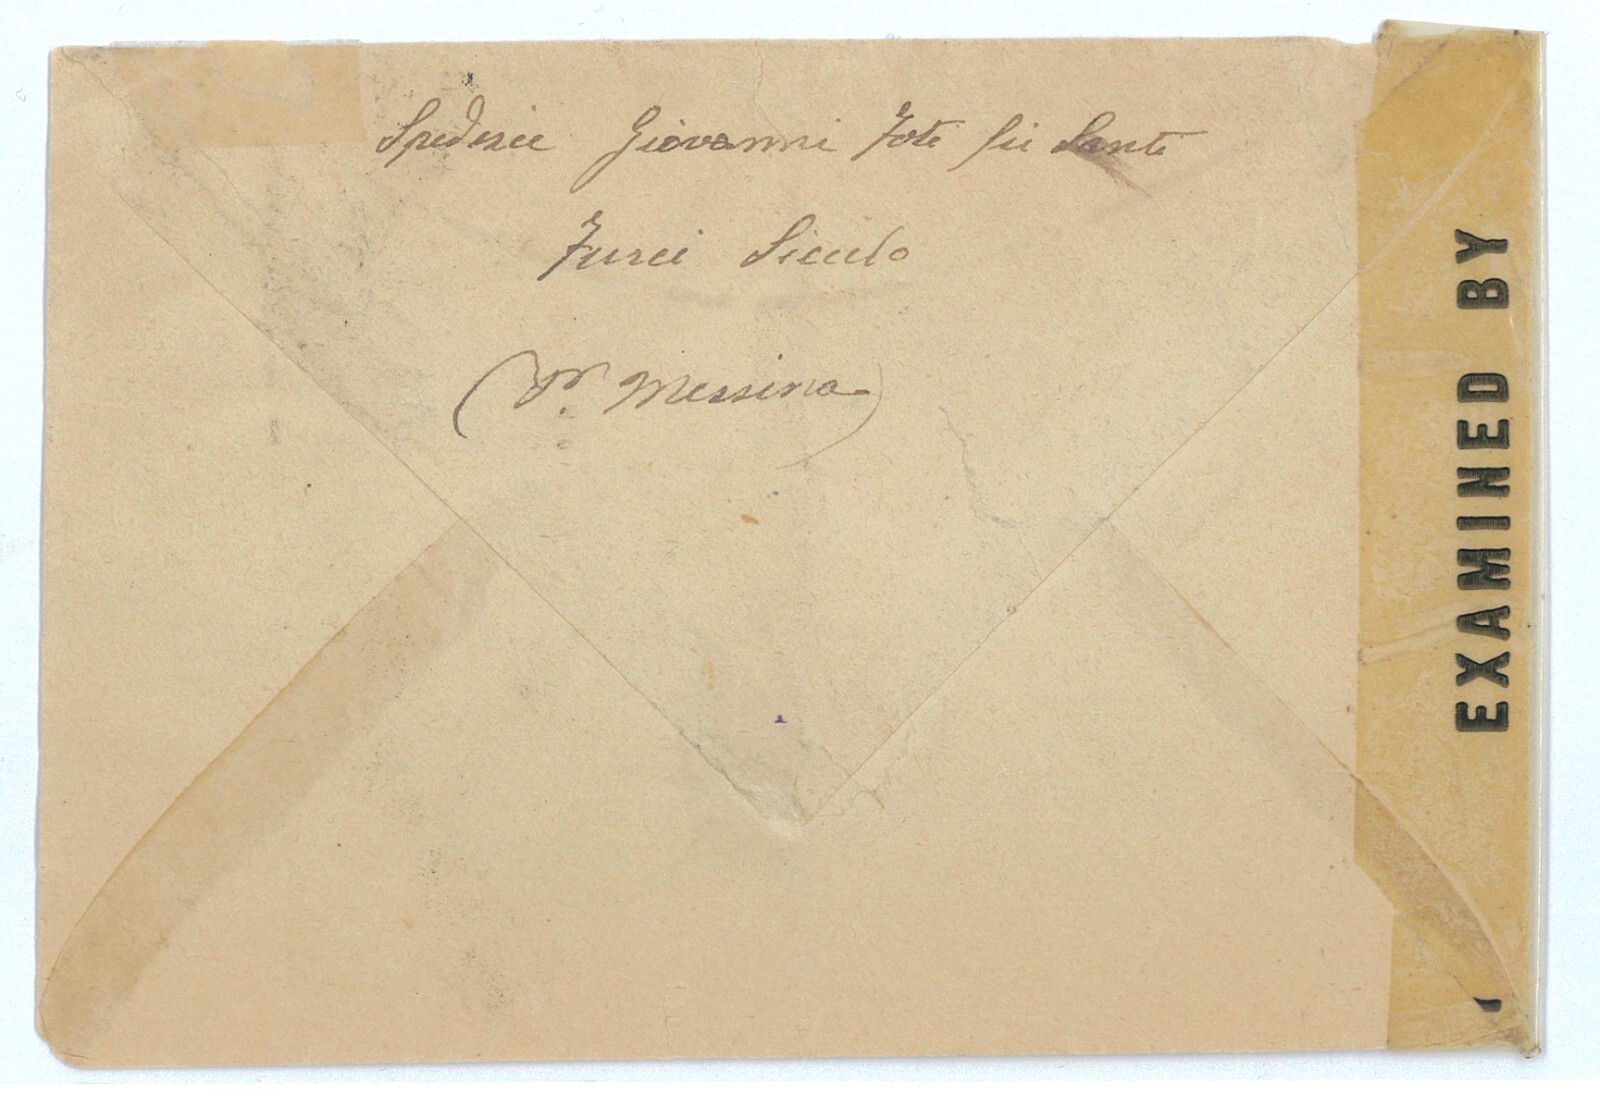 Spedisce Giovanni Foti fu Santi
Furci Siculo
(Pr. Messina)
EXAMINED BY